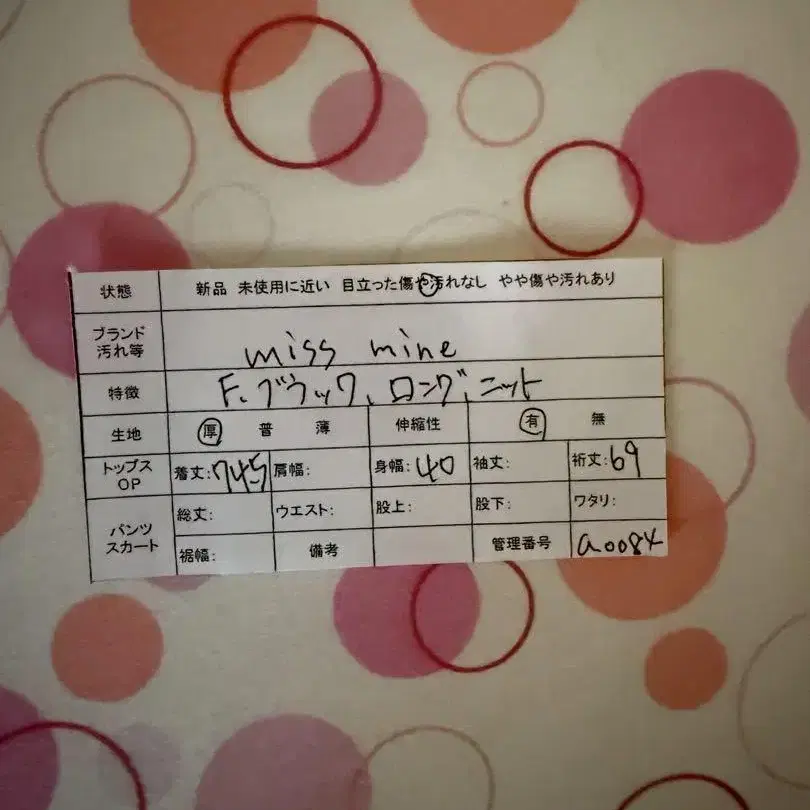 状態 新品 未使用に近い 目立った傷や汚れなし やや傷や汚れあり
ブランド
汚れ等
miss mine
特徴 F、ブラック、ロング、ニット
生地 厚 普 薄 伸縮性 有 無
トップス
OP
着丈:74.5 肩幅: 身幅:40 袖丈: 裄丈:69
パンツ
スカート
総丈: ウエスト: 股上: 股下: ワタリ:
裾幅: 備考 管理番号 a0084